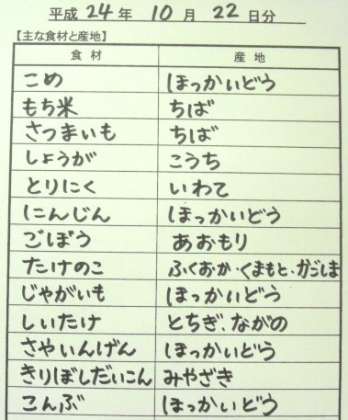 平成 24 年 10 月 22 日分
【主な食材と産地】
食材 産地
こめ ほっかいどう
もち米 ちば
さつまいも ちば
しょうが こうち
とりにく いわて
にんじん ほっかいどう
ごぼう あおもり
たけのこ ふくおか・くまもと・かごしま
じゃがいも ほっかいどう
しいたけ とちぎ、ながの
さやいんげん ほっかいどう
きりぼしだいこん みやざき
こんぶ ほっかいどう